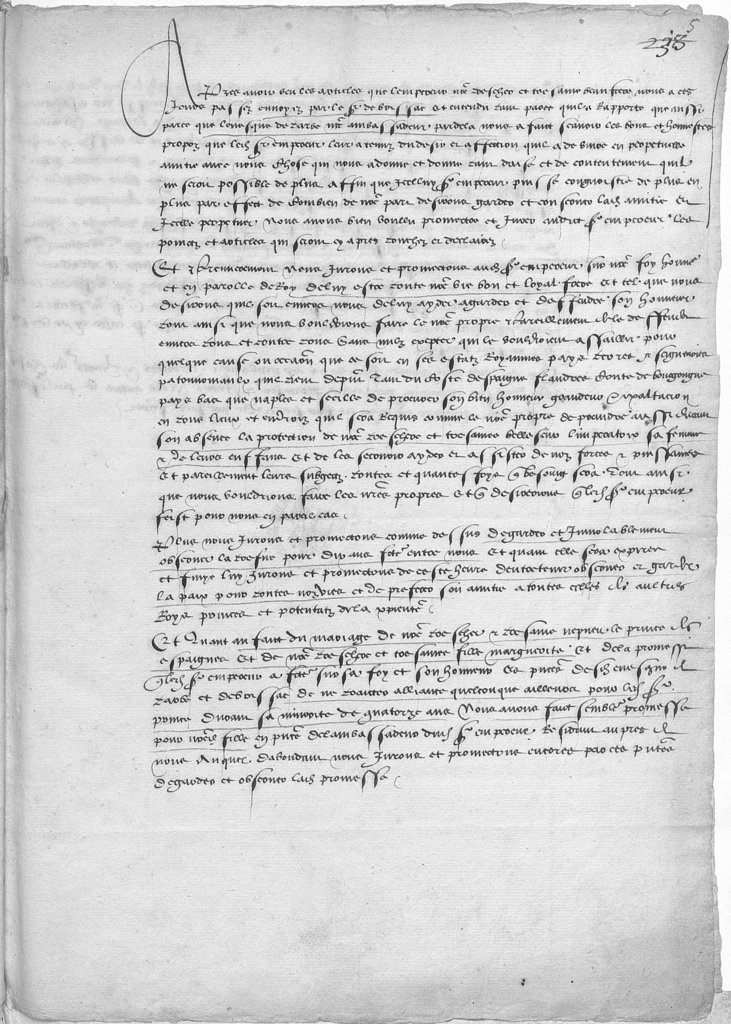 Apres avoir veu les articles que lempereur nre trescher et tresame bon frere nous a ces
Jours passez envoyez par le sr de boissac et entendu tant parce quil a Rapporte que aussi
parce que levesque de tarbe nre ambassadeur pardela nous a faict scavoir les bons et honnestes
propoz que ledit sr empereur luy a tenuz du desir et affection quil a de vivre en perpetuelle
amitie avec nous Chose qui nous a donne et donne tant daise et de contentement quil
ne seroit possible de plus Affin que Icelluy sr empereur puisse congnoistre de plus en
plus par effect de Combien de nre part desirons garder et conserver lad amitie et
Icelle perpetuer Nous avons bien voullu promectre et Jurer audit sr empereur les
poinctz et articles qui seront cy apres couchez et declairez
Et Premierement Nous Jurons et promectons aud sr empereur sur nre foy honneur
et en parolle de Roy de luy estre toute nre vie bon et loyal frere et tel que nous
desirons quil soit envers nous de luy ayder a garder et deffendre son honneur
tout ainsi que nous vouldrions faire le nre propre Pareillement de le deffendre
envers tous et contre tous Sans nulz excepter qui le vouldroient assaillir pour
quelque cause ou occasion que ce soit en ses estatz Royaumes pays terres et seigneuries
patrimoniaulx quil tient depuis Tant du Coste despaigne flandres Conte de bourgongne
pays bas que naples et secille de procurer son bien honneur grandeur et exaltacion
en tous lieux et endroiz quil sera Requis comme le nre propre de prendre aussi durant
son absence la protection de nre treschere et tresamee belle seur limperatrix sa femme
et de leurs enffans Et de les secourir ayder et assister de noz forces et puissances
Et pareillement leurs subgectz toutes et quantes foys que besoing sera Tout ainsi
que nous vouldrions faire les nres propres Et que desirerions que ledit sr empereur
feist pour nous en pareil cas
Plus nous Jurons et promectons comme dessus de garder et Inviolablement
observer la trefve pour dix ans fcte entre nous Et quant elle sera expiree
et finye luy Jurons et promectons de ceste heure dentretenir observer et garder
la paix pour toutes noz vies et de preferer son amitie a toutes celles des aultres
Roys princes et potentatz de la xpiente
Et Quant au faict du mariage de nre trescher et tresame nepveu le prince des
espaignes Et de nre treschere et tresamee fille marguerite Et de la promesse
que ledit sr empereur a fcte sur sa foy et son honneur es presences desd evesque de
tarbe et de boissac de ne traicter alliance quelconque ailleurs pour led sr
prince durant sa minorite de quatorze ans Nous avons faict semble promesse
pour nred fille en presence de lambassadeur dud sr empereur Residant aupres de
nous Auquel dabondant nous Jurons et promectons encores par ces presentes
de garder et observer lad promesse